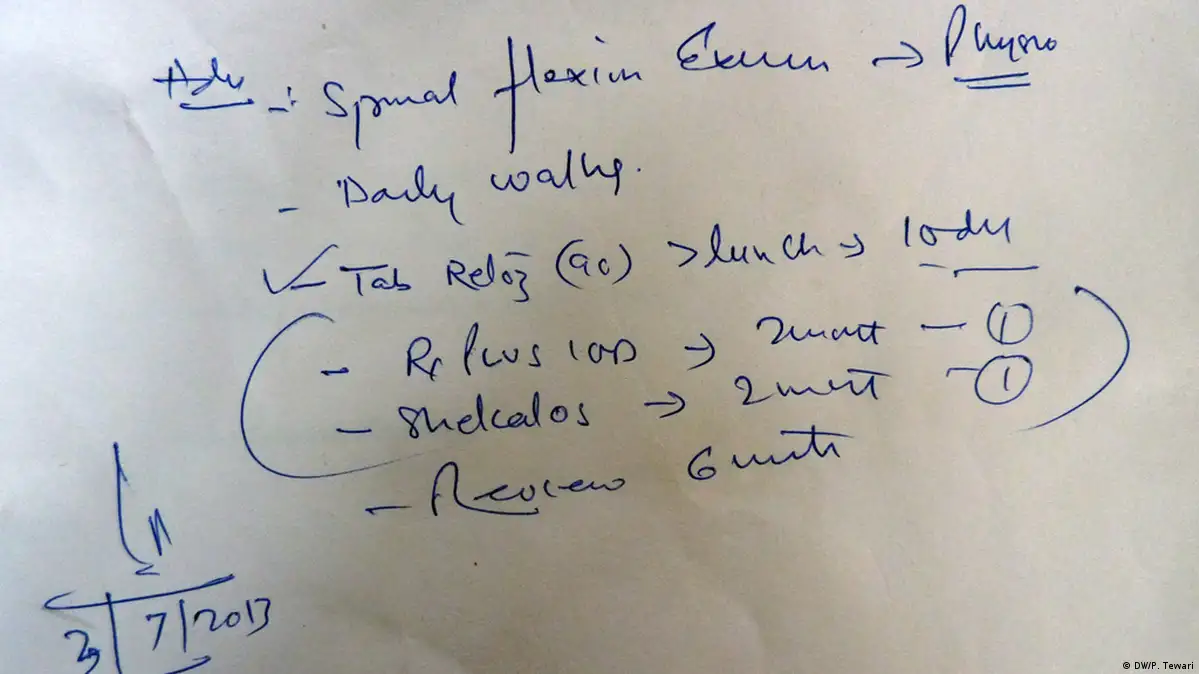 Adv -: Spinal flexion Exerces → Physio
- Daily walkg.
✓ Tab Reloz (90) > lunch → 10 dy
- → 2 mnt - ①
- Shelcalos → 2 mnt - ①
- Review 6 mnt
7/2013
© DW/P. Tewari